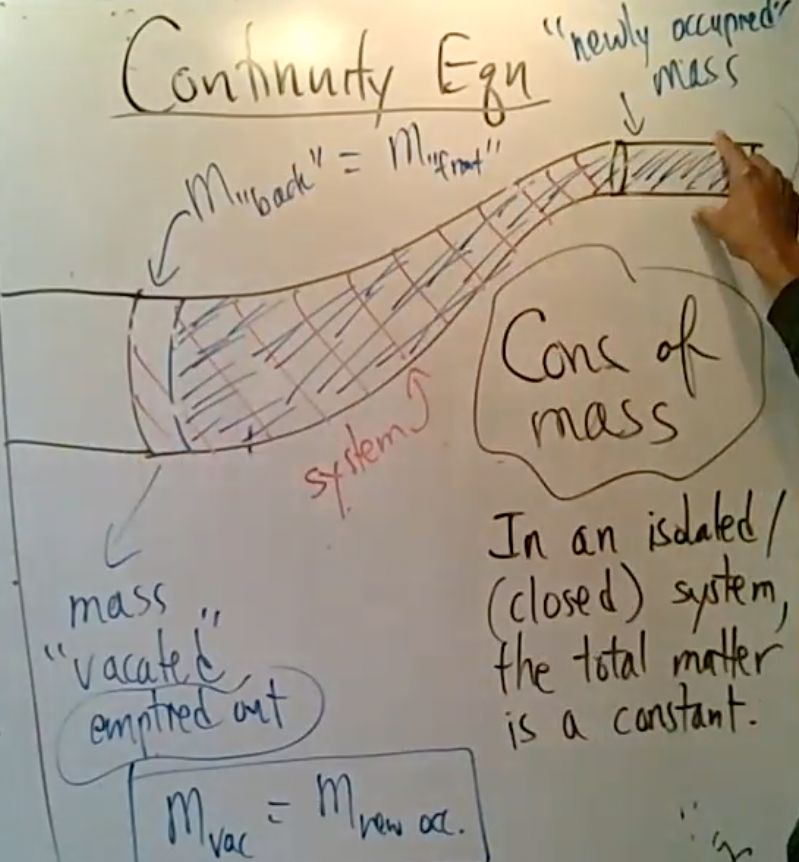 Continuity Eqn
"newly occupied"
mass
m"back" = m"front"
system
Cons of
mass
In an isolated/
(closed) system,
the total matter
is a constant.
mass
"vacated"
emptied out
m vac = m new occ.